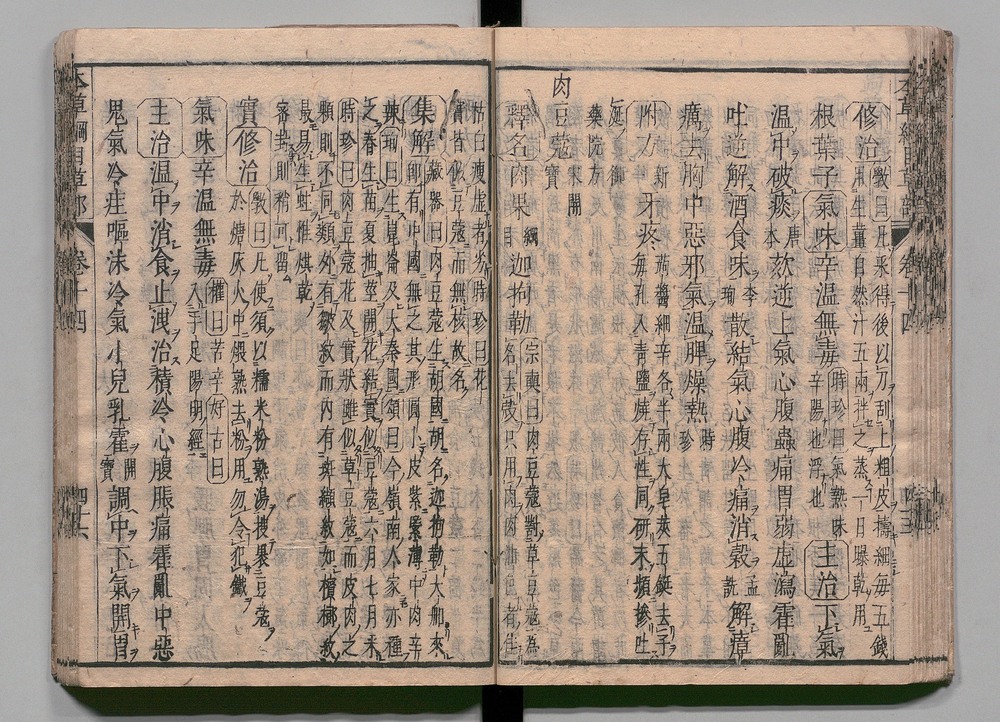 修治 斅曰凡采得後以刀刮上粗皮擣細每五錢用生薑自然汁五兩拌之蒸一日曝乾用
根葉子 氣味辛溫無毒 時珍曰氣熱味辛陽也浮也 主治下氣
溫中破痰 本唐 欬逆上氣心腹蟲痛胃弱虛瀉霍亂
吐逆解酒食味 李珣 散結氣心腹冷痛消穀 孟詵 解瘴
癘去胸中惡邪氣溫脾燥熱 時珍
附方 新 牙疼 蒟醬細辛各半兩大皂莢五鋌去子每孔入青鹽燒存性同研末頻摻吐涎 御藥院方
肉豆蔻 宋開寶
釋名 肉果 綱目 迦拘勒 宗奭曰肉豆蔻對草豆蔻為名去殼只用肉肉油色者佳
枯白瘦虛者劣時珍曰花實皆似豆蔻而無核故名
集解 藏器曰肉豆蔻生胡國胡名迦拘勒大舶來即有中國無之其形圓小皮紫緊薄中肉辛
辣珣曰生崑崙及大秦國頌曰今嶺南人家亦種之春生苗夏抽莖開花結實似豆蔻六月七月采
時珍曰肉豆蔻花及實狀雖似草豆蔻而皮肉之顆則不同類外有皺紋而內有斑纈紋如檳榔紋
最易生蛀惟烘乾密封則稍可留
實 修治 斅曰凡使須以糯米粉熟湯搜裹豆蔻於煻灰火中煨熟去粉用勿令犯鐵
氣味辛溫無毒 權曰苦辛好古曰入手足陽明經
主治溫中消食止洩治積冷心腹脹痛霍亂中惡
鬼氣冷疰嘔沫冷氣小兒乳霍 開寶 調中下氣開胃
本草綱目草部 卷十四
四十六